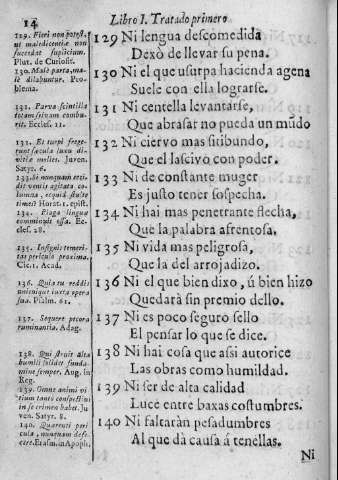 14
Libro I. Tratado primero
129 Ni lengua descomedida
Dexò de llevar su pena.
130 Ni el que usurpa hacienda agena
Suele con ella lograrse.
131 Ni centella levantarse,
Que abrasar no pueda un mũdo
132 Ni ciervo mas sitibundo,
Que el lascivo con poder.
133 Ni de constante muger
Es justo tener sospecha.
134 Ni hai mas penetrante flecha,
Que la palabra afrentosa.
135 Ni vida mas peligrosa,
Que la del arrojadizo.
136 Ni el que bien dixo, ú bien hizo
Quedarà sin premio dello.
137 Ni es poco seguro sello
El pensar lo que se dice.
138 Ni hai cosa que assi autorice
Las obras como humildad.
139 Ni ser de alta calidad
Luce entre baxas costumbres.
140 Ni faltaràn pesadumbres
Al que dà causa á tenellas.
Ni
129. Fieri non potest,
ut maledicentiæ non
succedat suplicium.
Plut. de Curiosit.
130. Malè parta, ma-
lè dilabuntur. Pro-
blema.
131. Parva scintilla
totam silvam combu-
rit. Eccles. 11.
131. Et turpi frege-
runt sæcula luxu di-
vitiæ molles. Juven.
Satyr. 6.
133. Si nunquam
venis agitata co-
lumna,
times? Horat. 1. epist.
134. Plaga linguæ
comminuit ossa. Ec-
cles. 28.
135. Insignis temeri-
tas periculo proxima.
Cic. 1. Acad.
136. Quia tu reddis
unicuique iuxta opera
sua. Psalm. 61.
137. Sequere pecora
ruminantia. Adag.
138. Qui struit alta
humili solidet funda-
mine semper. Aug. in
Reg.
139. Omne animi vi-
tium tanto conspectius
in se crimen habet. Ju
ven. Satyr. 8.
140. Quærenti peri-
cula, nunquam defi-
cere. Erasm. in Apoph.